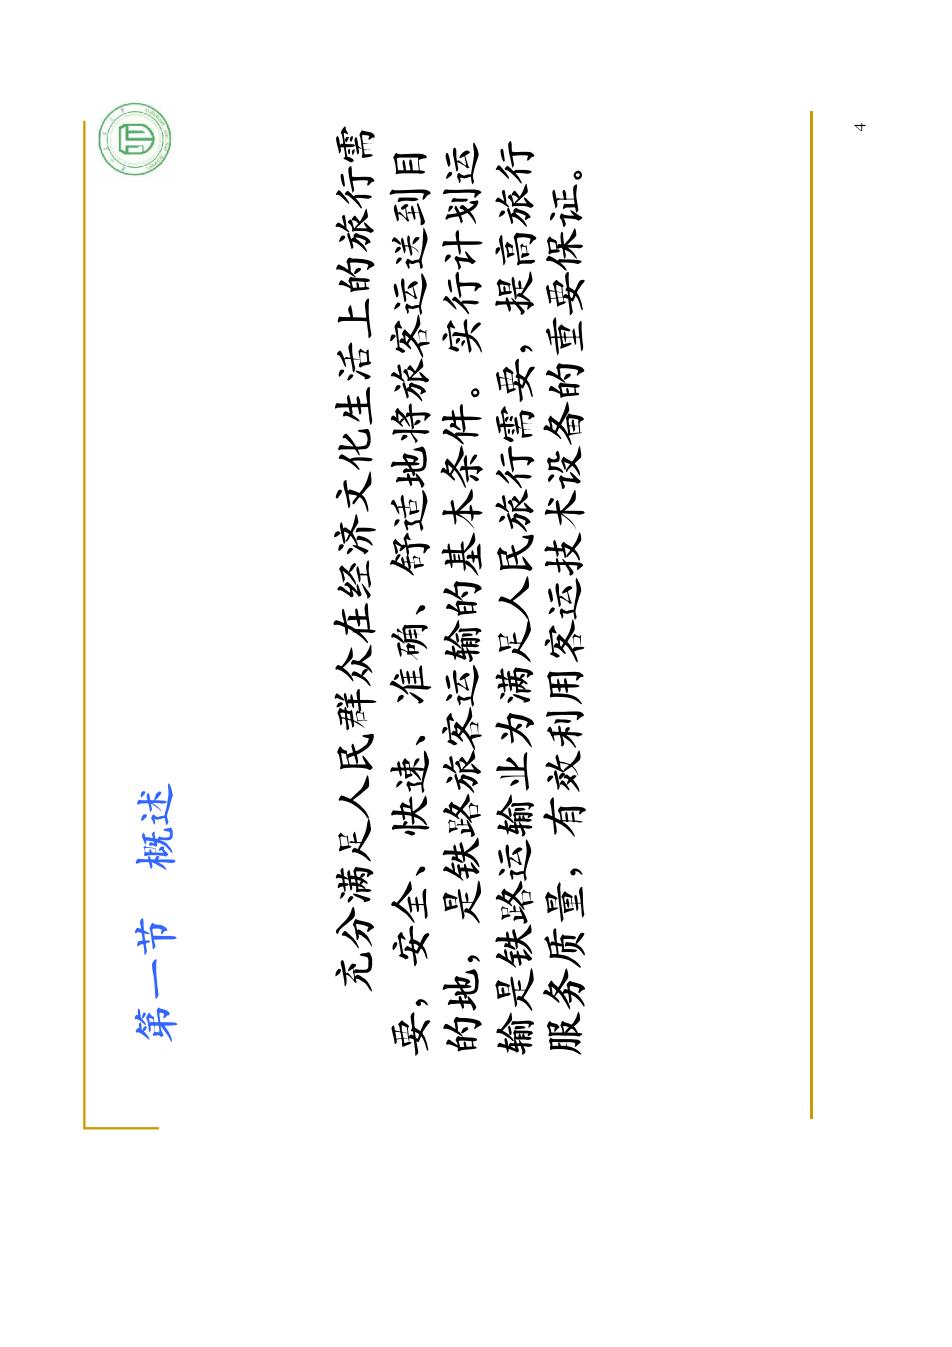 第一节 概述
充分满足人民群众在经济文化生活上的旅行需
要，安全、快速、准确、舒适地将旅客运送到目
的地，是铁路旅客运输的基本条件。实行计划运
输是铁路运输业为满足人民旅行需要，提高旅行
服务质量，有效利用客运技术设备的重要保证。
4